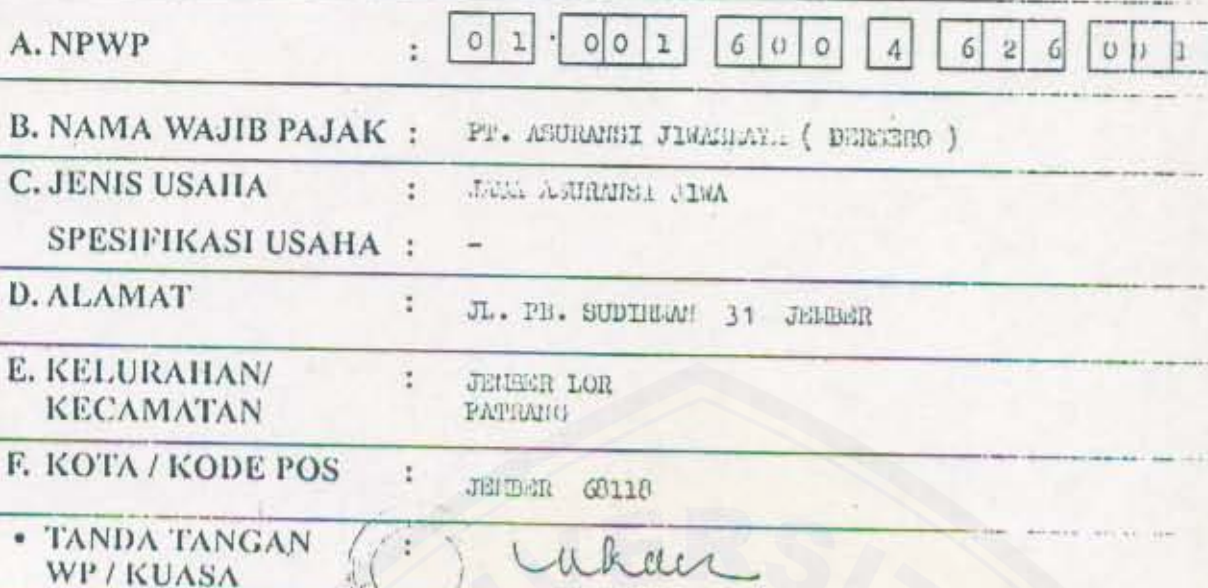 A. NPWP : 01 · 001 600 4 626 001
B. NAMA WAJIB PAJAK : PT. ASURANSI JIWASRAYA ( PERSERO )
C. JENIS USAHA : JASA ASURANSI JIWA
SPESIFIKASI USAHA : -
D. ALAMAT : JL. PB. SUDIRMAN 31 JEMBER
E. KELURAHAN/ : JEMBER LOR
KECAMATAN PATRANG
F. KOTA / KODE POS : JEMBER 68118
• TANDA TANGAN :
WP / KUASA